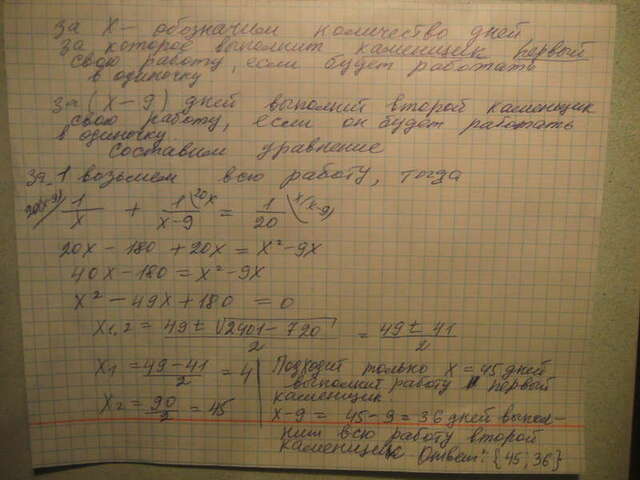 за х – обозначим количество дней
за которое выполнит каменщик первый
свою работу, если будет работать
в одиночку
за (х – 9) дней выполнит второй каменщик
свою работу, если он будет работать
в одиночку.
Составим уравнение
За 1 возьмем всю работу, тогда
20(х-9)/ 1/х + 1/(х-9) \20х = 1/20 \х(х-9)
20х – 180 + 20х = х² – 9х
40х – 180 = х² – 9х
х² – 49х + 180 = 0
х1,2 = (49 ± √(2401 – 720))/2 = (49 ± 41)/2
х1 = (49 – 41)/2 = 4
х2 = 90/2 = 45
Подходит только х = 45 дней
выполнит работу первый
каменщик
х – 9 = 45 – 9 = 36 дней выпол-
нит всю работу второй
каменщик. Ответ: {45; 36}